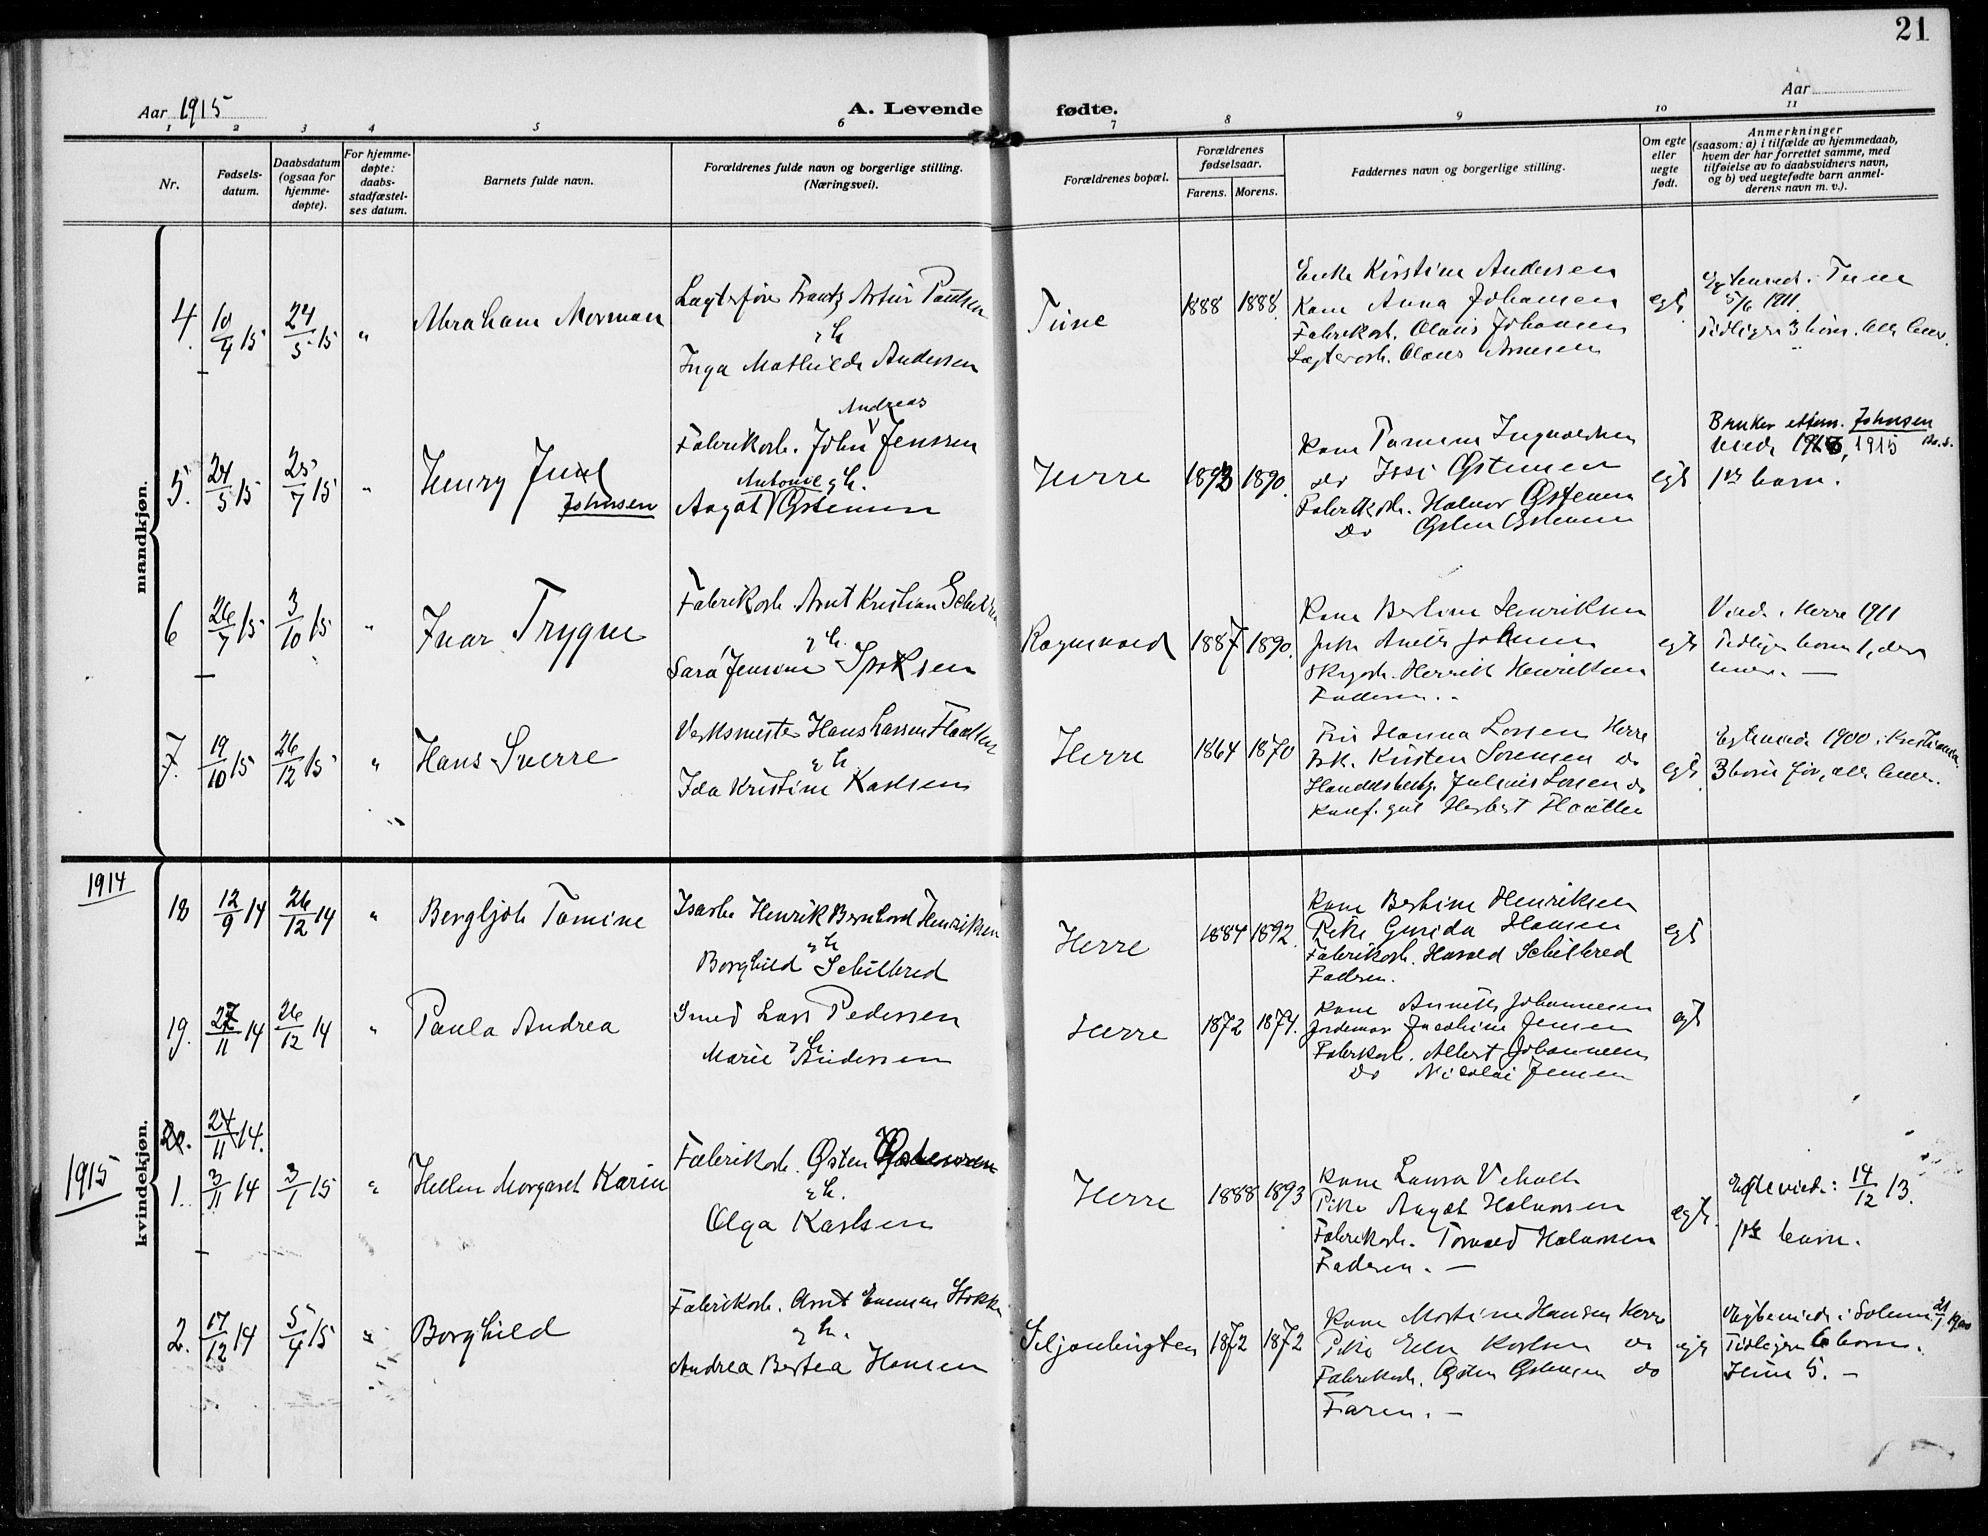 21
Aar 1915
A. Levende fødte.
Aar
1 2 3 4 5 6 7 8 9 10 11
Nr.
Fødsels-
datum.
Daabsdatum
(ogsaa for
hjemme-
døpte).
For hjemme-
døpte:
daabs-
stadfæstel-
ses datum.
Barnets fulde navn.
Forældrenes fulde navn og borgerlige stilling.
(Næringsvei).
Forældrenes bopæl.
Forældrenes
fødselsaar.
Farens. Morens.
Faddernes navn og borgerlige stilling.
Om egte
eller
uegte
født.
Anmerkninger
(saasom: a) i tilfælde av hjemmedaab,
hvem der har forrettet samme, med
tilføielse av to daabsvidners navn,
og b) ved uegtefødte barn anmel-
derens navn m. v.).
mandkjøn.
4. 10/4 15 24/5 15 " Abraham Norman
Frantz Artur
&h
Inga Mathilde Andersen
Tune
1888 1888.
Enke Kirstine Andersen
Kone Anna Johansen
Fabrikarb. Olaus Johansen
Olaus Arnesen
egt.
Tune
5/6 1911.
Tidligere 3 born. alle lever.
5. 24/5 15 25/7 15 " Henry Juul
Johnsen
Andreas
Fabrikarb. John Jenssen
Antonie &h.
Aagot Østensen
Herre
1893 1890.
Kone Ingvaldsen
Do Østensen
Fabrikarb. Halvor Østensen
Do Østen Østensen
egt
Bruker eftern. Johnsen
1915
1ste barn.
6 26/7 15 3/10 15 " Ivar Trygve
Fabrikarb. Arnt Kristian
&h.
Sara Jensine
Rognvald
1887 1890.
Kone Bertine Henriksen
Henrik Henriksen
Faderen.
egt
Viede i Herre 1911
Tidligere born 1, der
lever. —
7. 19/10 15 26/12 15 " Hans Sverre
Verksmester Hans Larsen
&h
Ida Kristine Karlsen
Herre
1864 1870
Hanna Larsen Herre
Kirsten Sørensen do
Julius Larsen do
Herbert
egt.
Egteviede 1900 i Kristiania.
3 born før, alle lever.
1914
kvindekjøn.
18 12/9 14 26/12 14 " Bergljot Tomine
Henrik Bernhard Henriksen
&h
Borghild Schilbred
Herre
1884 1892.
Kone Bertine Henriksen
Pike Gunda Hansen
Fabrikarb. Harald Schilbred
Faderen.
egt
19. 27/11 14 26/12 14 " Paula Andrea
Smed Lars Pedersen
&h
Marie Andersen
Herre
1872 1874.
Kone Annette Johannesen
Jordemor Jensen
Fabrikarb. Albert Johannesen
Do Nicolai Jensen
egt
20. 24/11 14.
1915
1. 3/11 14 3/1 15 " Hellen Margaret Karin
Fabrikarb. Østen Østensen
&h.
Olga Karlsen
Herre
1888 1893
Kone Laura
Pike Aagot Halvorsen
Fabrikarb. Torvald Halvorsen
Faderen. —
egt.
Egteviede: 14/12 13.
1ste barn.
2. 17/12 14 5/4 15 " Borghild
Fabrikarb. Arnt
&h.
Andrea Bertea Hansen
1872 1872
Kone Martine Hansen Herre
Pike Ellen Karlsen do
Fabrikarb. Østen Østensen do
Faren. —
egt
Egteviede i Solum
Tidligere 6 born.
5. —